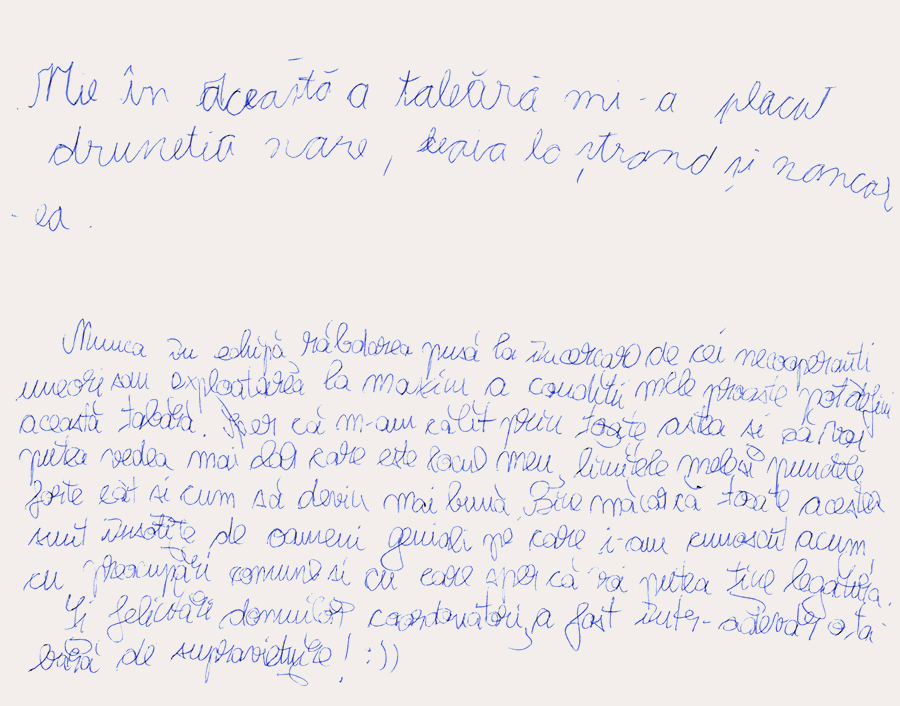 Mie în această a taleără mi-a placut
drunetia nare, baia la ștrand și nancar
-ea.
Munca în echipă răbdarea pusă la încercare de cei necooperanti
uneori sau exploatarea la maxim a conditii mele proaste pot defini
această tabără. Sper că m-am călit prin toate astea si că voi
putea vedea mai clar care este locul meu, limitele mele si punctele
forte cât si cum să devin mai bună. Bine măcar că toate acestea
sunt însotite de oameni geniali pe care i-am cunoscut acum,
cu preocupări comune si cu care sper că voi putea tine legătura.
Si felicitări domnilor coordonatori, a fost într-adevăr o ta-
bără de supravietuire! :))